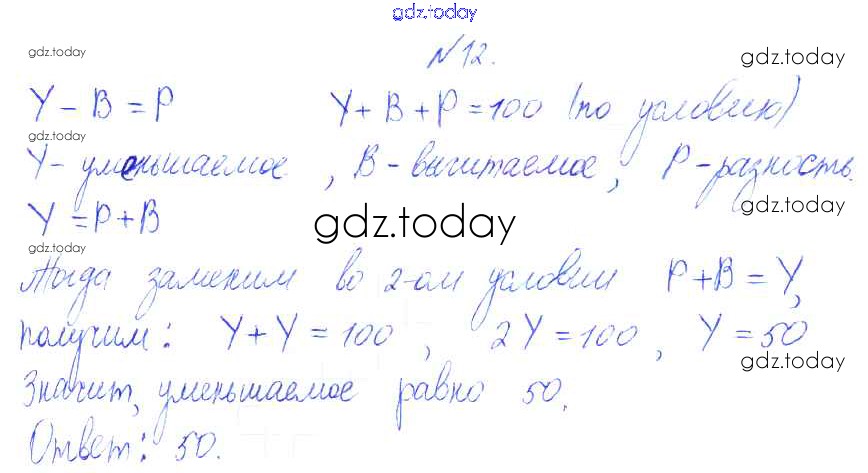 gdz.today
№12.
gdz.today gdz.today
У - В = Р У + В + Р = 100 (по условию)
gdz.today
У - уменьшаемое, В - вычитаемое, Р - разность.
У = Р + В gdz.today gdz.today
gdz.today
Тогда заменим во 2-ом условии Р + В = У,
получим: У + У = 100, 2У = 100, У = 50
gdz.today
Значит, уменьшаемое равно 50.
Ответ: 50.